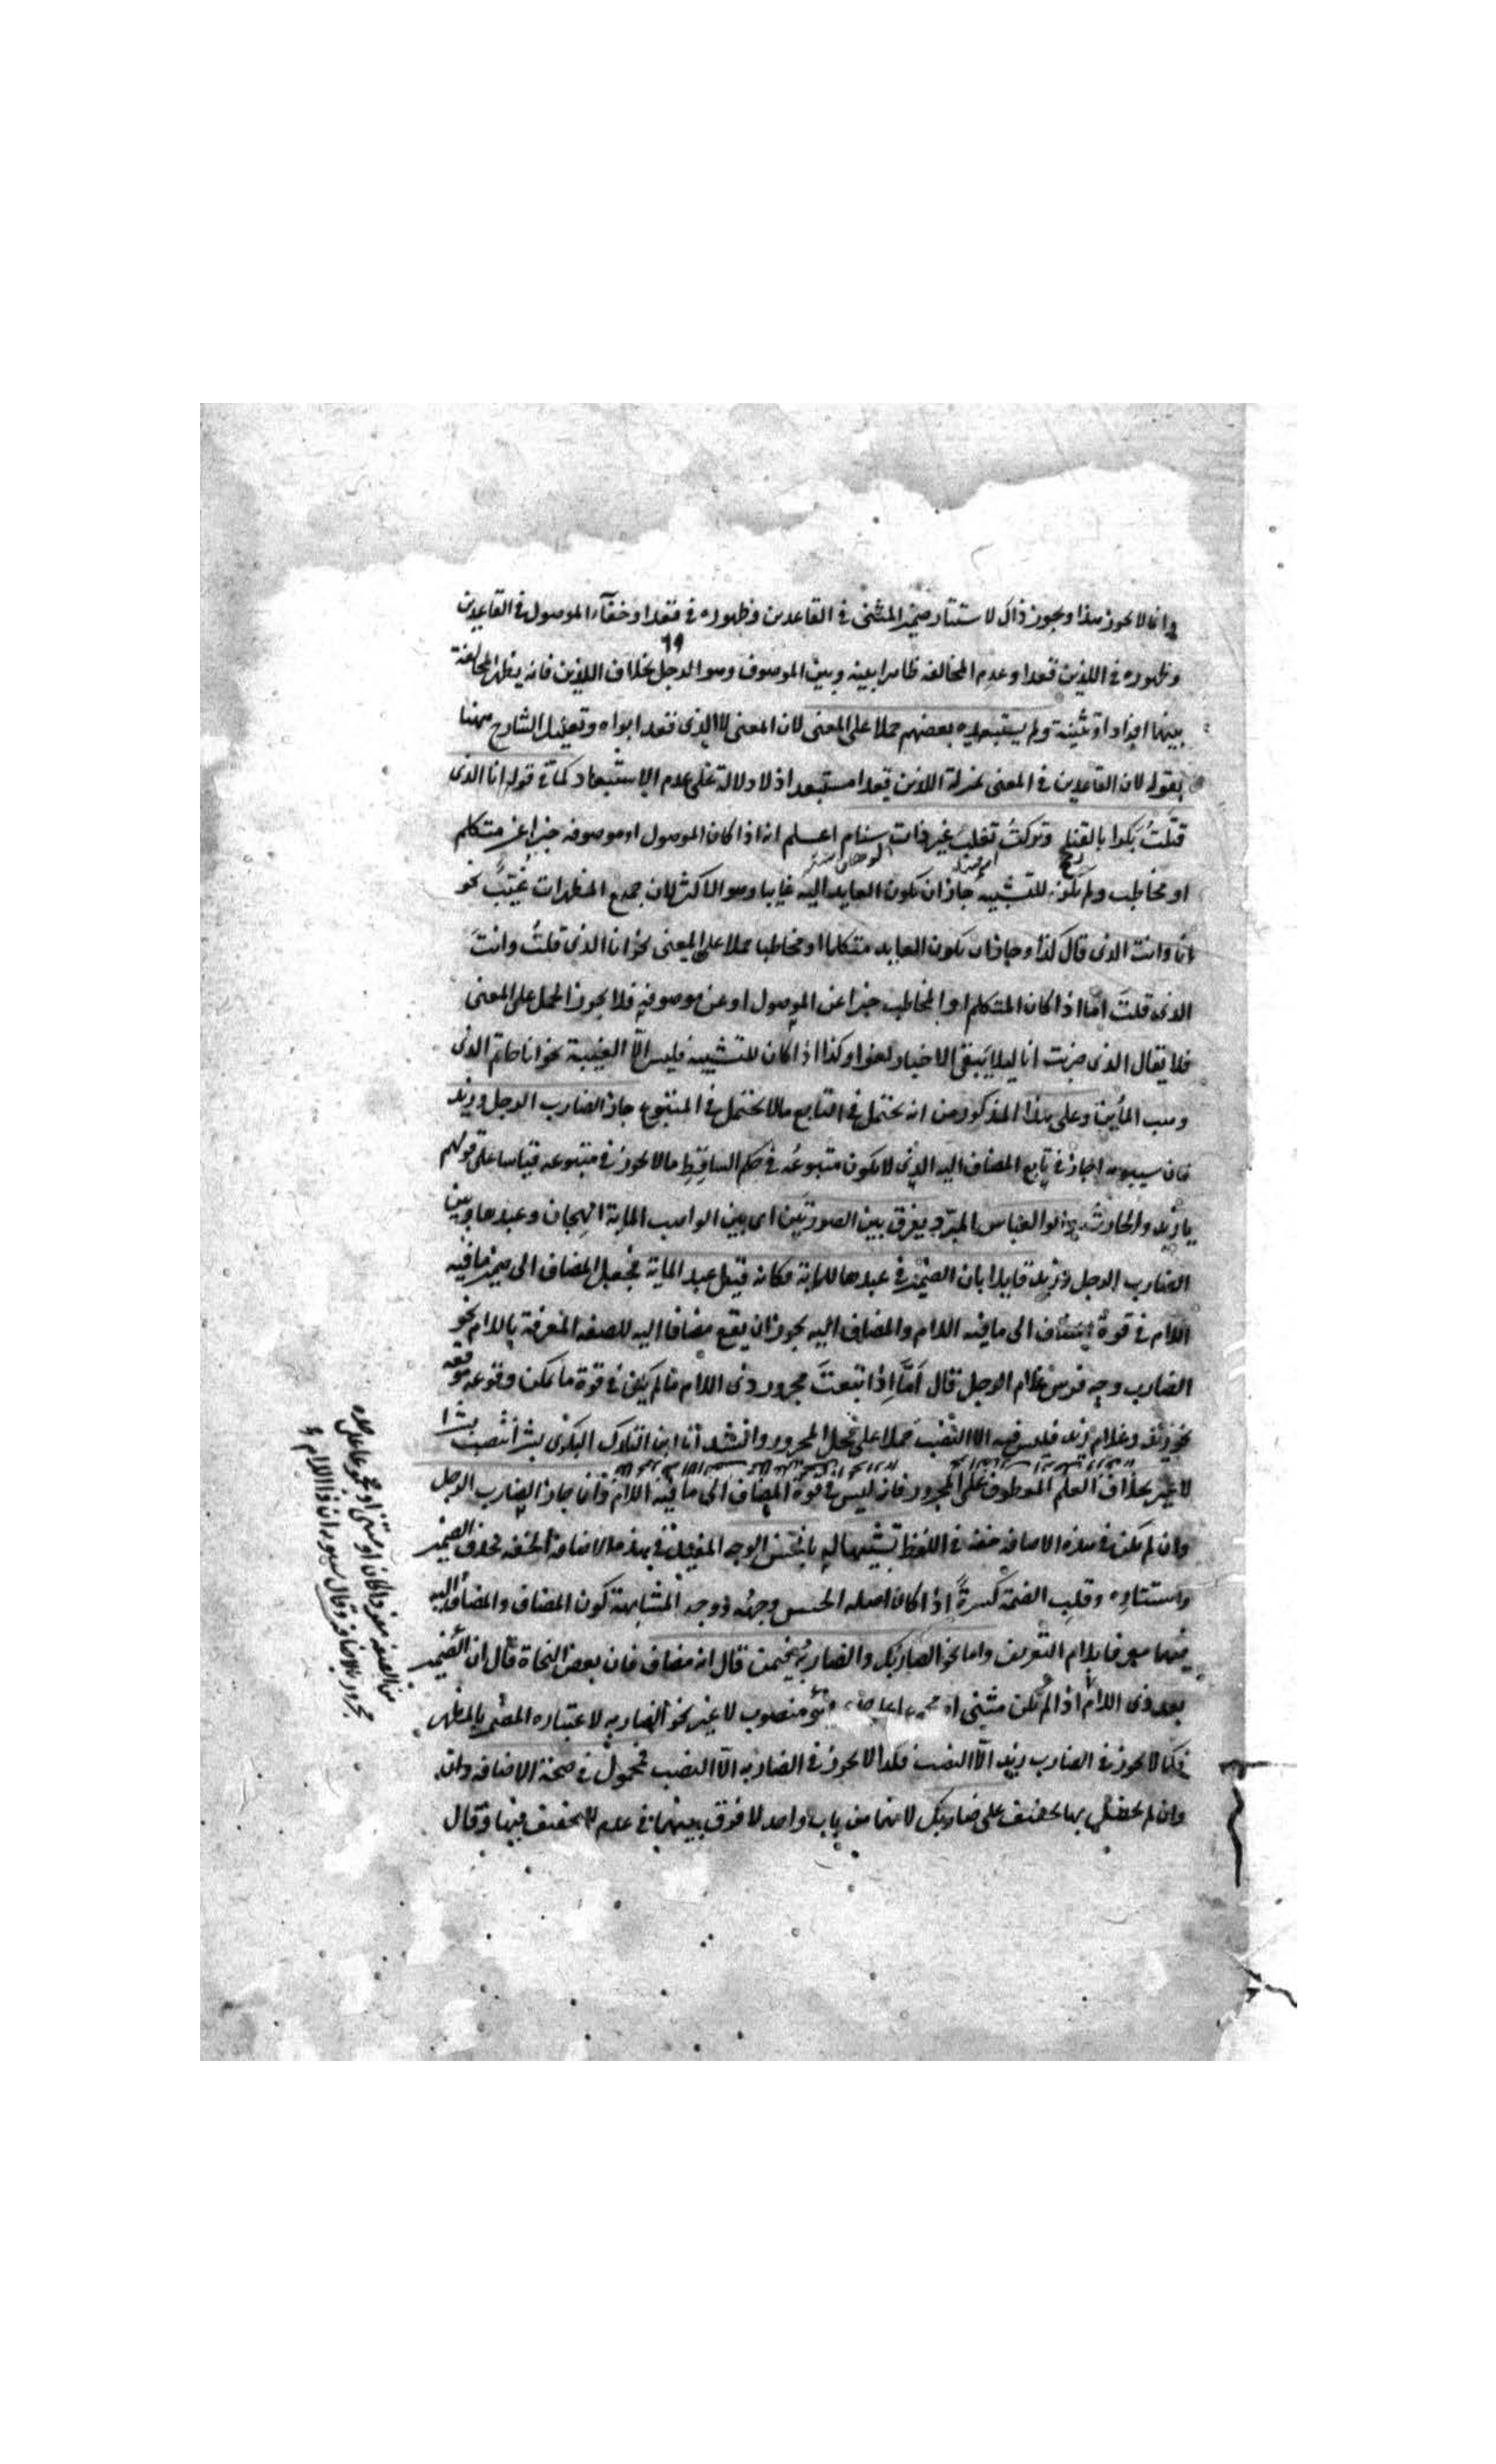 وانما لا يجوز هذا ويجوز ذاك لاستتار ضمير المثنى في القاعدين وظهوره في قعدا وخفآء الموصول في القاعدين
٦٩
وظهوره في اللذين قعدا وعدم المخالفه ظاهرا بينه وبين الموصوف وهو الرجل بخلاف اللذين فانه يظهر المخالفة
بينهما افرادا وتثنية ولم يستبعده بعضهم حملا على المعنى لان المعنى الذى قعد ابواه وتعليل الشارح ههنا
بقوله لان القاعدين في المعنى بمنزلة اللذين قعدا مستبعد اذ لا دلالة على عدم الاستبعاد كما في قوله انا الذى
قتلت بكرا بالقنا وتركت تغلب غير ذات سنام اعلم انه اذا كان الموصول او موصوفه خبرا عن متكلم
او مخاطب ولم يكن للتشبيه جاز ان يكون العايد اليه غايبا وهو الاكثر لان جميع المظهرات غيب نحو
انا وانت الذى قال كذا وجاز ان يكون العايد متكلما او مخاطبا حملا على المعنى نحو انا الذى قلت وانت
الذى قلت اما اذا كان المتكلم او المخاطب خبرا عن الموصول او عن موصوفه فلا يجوز الحمل على المعنى
فلا يقال الذى ضربت انا ليلا يبقى الاخبار لغوا وكذا اذا كان للتشبيه فليس الا الغيبة نحو انا حاتم الذى
وهب المأين وعلى هذا المذكور من انه يحتمل في التابع ما لا يحتمل في المتبوع جاز الضارب الرجل وزيد
فان سيبويه اجاز في تابع المضاف اليه الذى لا يكون متبوعه في حكم الساقط ما لا يجوز في متبوعه قياسا على قولهم
يا زيد والحارث وابو العباس المبرد يفرق بين الصورتين اى بين الواهب الماية الهجان وعبدها وبين
الضارب الرجل وزيد قايلا بان الضمير في عبدها للماية فكانه قيل عبد الماية فجعل المضاف الى ضمير ما فيه
اللام في قوة المضاف الى ما فيه اللام والمضاف اليه يجوز ان يقع مضافا اليه للصفه المعرفة باللام نحو
الضارب وجه فرس غلام الرجل قال اما اذا اتبعت مجرور ذى اللام ما لم يكن في قوة ما يمكن وقوعه موقعه
نحو زيد وغلام زيد فليس فيه الا النصب حملا على محل المجرور وانشد انا ابن التارك البكرى بشرا بنصب بشرا
لا غير بخلاف العلم المعطوف على المجرور فانه ليس في قوة المضاف الى ما فيه اللام وانما جاز الضارب الرجل
وان لم يكن في هذه الاضافه خفة في اللفظ تشبيها له بالحسن الوجه المفيد في هذه الاضافة الخفه بحذف الضمير
واستتاره وقلب الضمة كسرة اذا كان اصله الحسن وجهه ووجه المشابهة كون المضاف والمضاف اليه
فيهما معرفا بلام التعريف واما نحو الضاربك والضاربه فيمن قال انه مضاف فان بعض النحاة قال ان الضمير
بعد ذى اللام اذا لم يكن مثنى او منصوب لا غير نحو الضاربه لاعتباره المضمر بالمظهر
فكما لا يجوز في الضارب زيد الا النصب فكذا لا يجوز في الضاربه الا النصب فمحمول في صحة الاضافه وان
وان لم يحصل بها تخفيف على ضاربك لانهما من باب واحد لا فرق بينهما في عدم التخفيف فيها وقال
من الصفه مفردا كان او مثنى او مجموعا على حده
مجرور بالاضافه وقال سيبويه ان ذا اللام